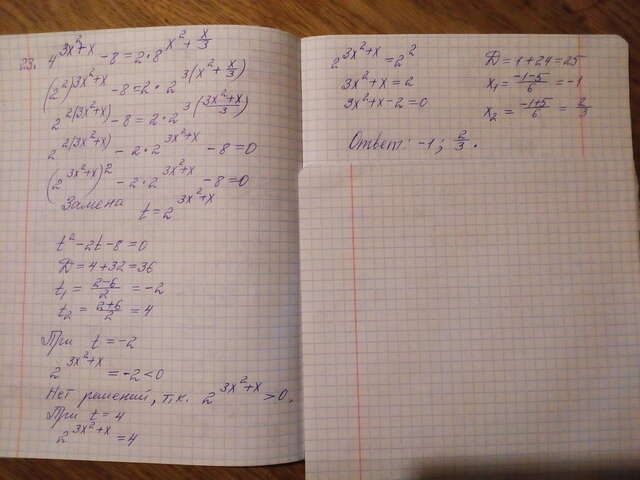 23. 4^{3x²+x} - 8 = 2·8^{x²+x/3}
(2²)^{3x²+x} - 8 = 2·2^{3(x²+x/3)}
2^{2(3x²+x)} - 8 = 2·2^{3((3x²+x)/3)}
2^{2(3x²+x)} - 2·2^{3x²+x} - 8 = 0
(2^{3x²+x})² - 2·2^{3x²+x} - 8 = 0
Замена t = 2^{3x²+x}
t² - 2t - 8 = 0
D = 4 + 32 = 36
t₁ = (2-6)/2 = -2
t₂ = (2+6)/2 = 4
При t = -2
2^{3x²+x} = -2 < 0
Нет решений, т.к. 2^{3x²+x} > 0.
При t = 4
2^{3x²+x} = 4
2^{3x²+x} = 2²
3x² + x = 2
3x² + x - 2 = 0
D = 1 + 24 = 25
x₁ = (-1-5)/6 = -1
x₂ = (-1+5)/6 = 2/3
Ответ: -1; 2/3.